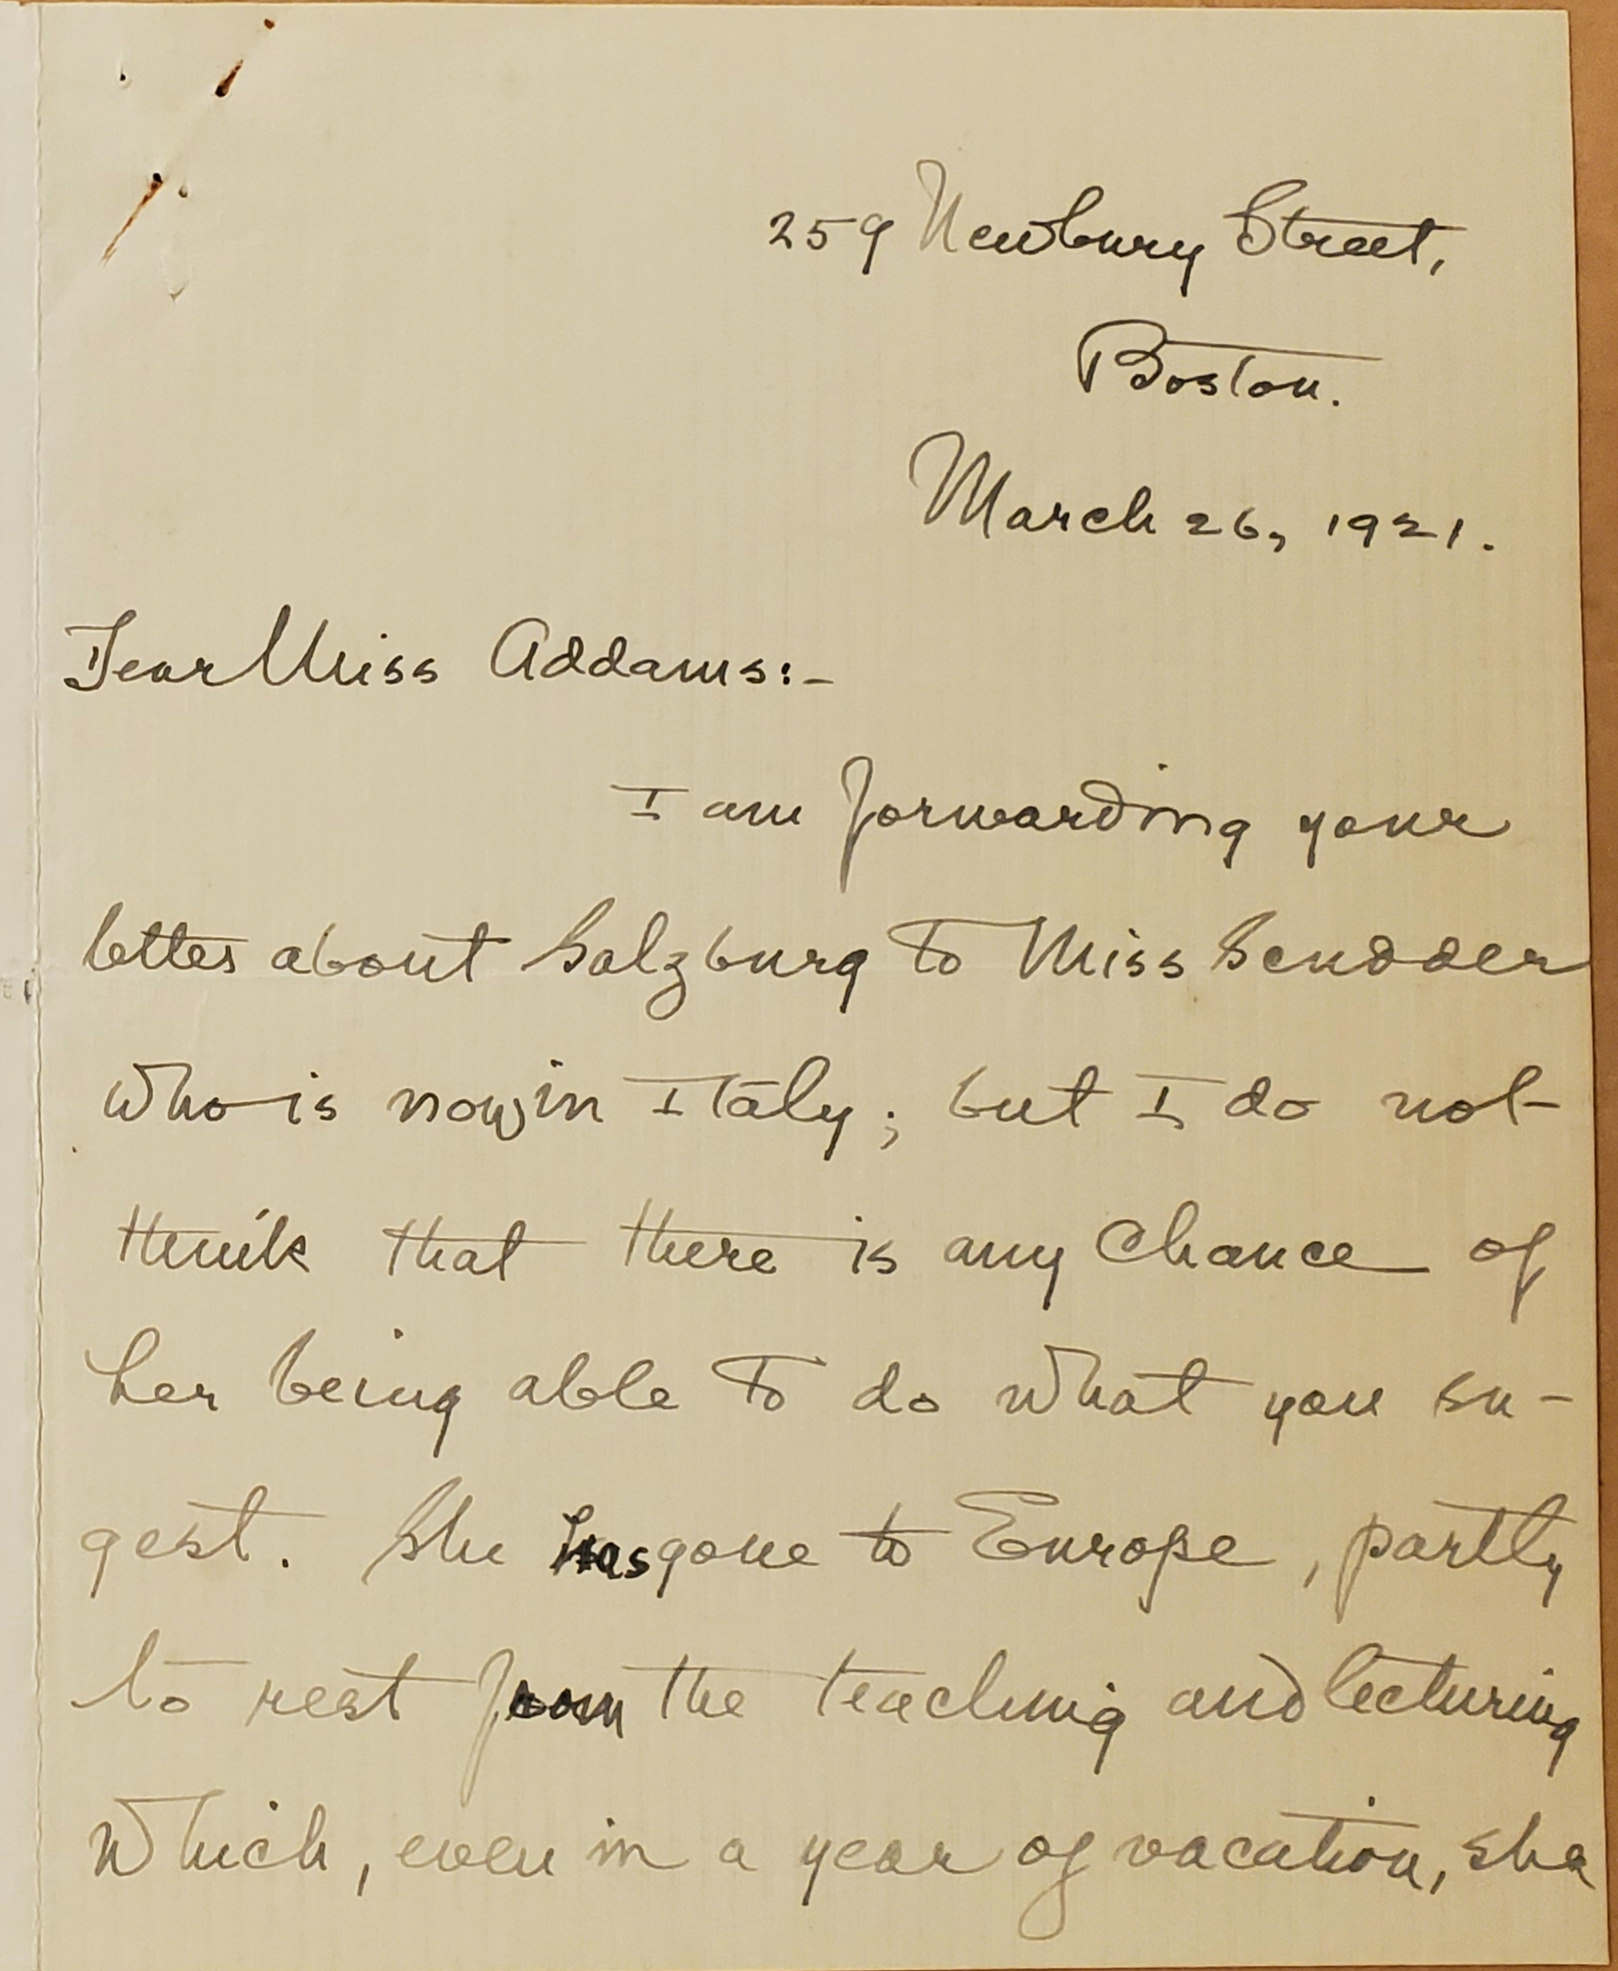 259 Newbury Street,
Boston.
March 26, 1921.
Dear Miss Addams:-
I am forwarding your
letter about Salzburg to Miss Scudder
who is now in Italy; but I do not
think that there is any chance of
her being able to do what you su-
gest. She has gone to Europe, partly
to rest from the teaching and lecturing
which, even in a year of vacation, she